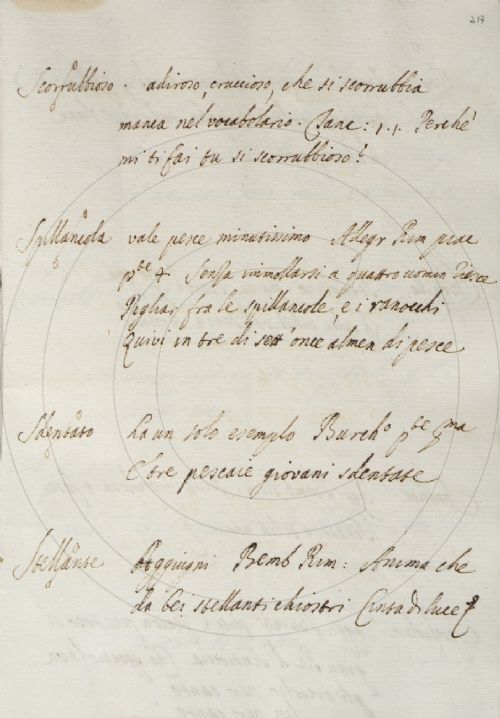 217
Scorrubbioso. adiroso, cruccioso, che si scorrubbia
manca nel vocabolario. Canc: 1.1. Perchè
mi ti fai tu sì scorrubbioso?
Spillancola vale pesce minutissimo Allegr Rim piac
pte 4 Senza immollarsi a quattro uomin riesce
Pigliar fra le spillancole, e i ranocchi
Quivi in tre dì sett'once almen di pesce
Sdentato ha un solo esempio Burcho pte pma
E tre pescaie giovani sdentate
Stellante Aggiugni Bemb Rim: Anima che
da bei stellanti chiostri Cinta di luce